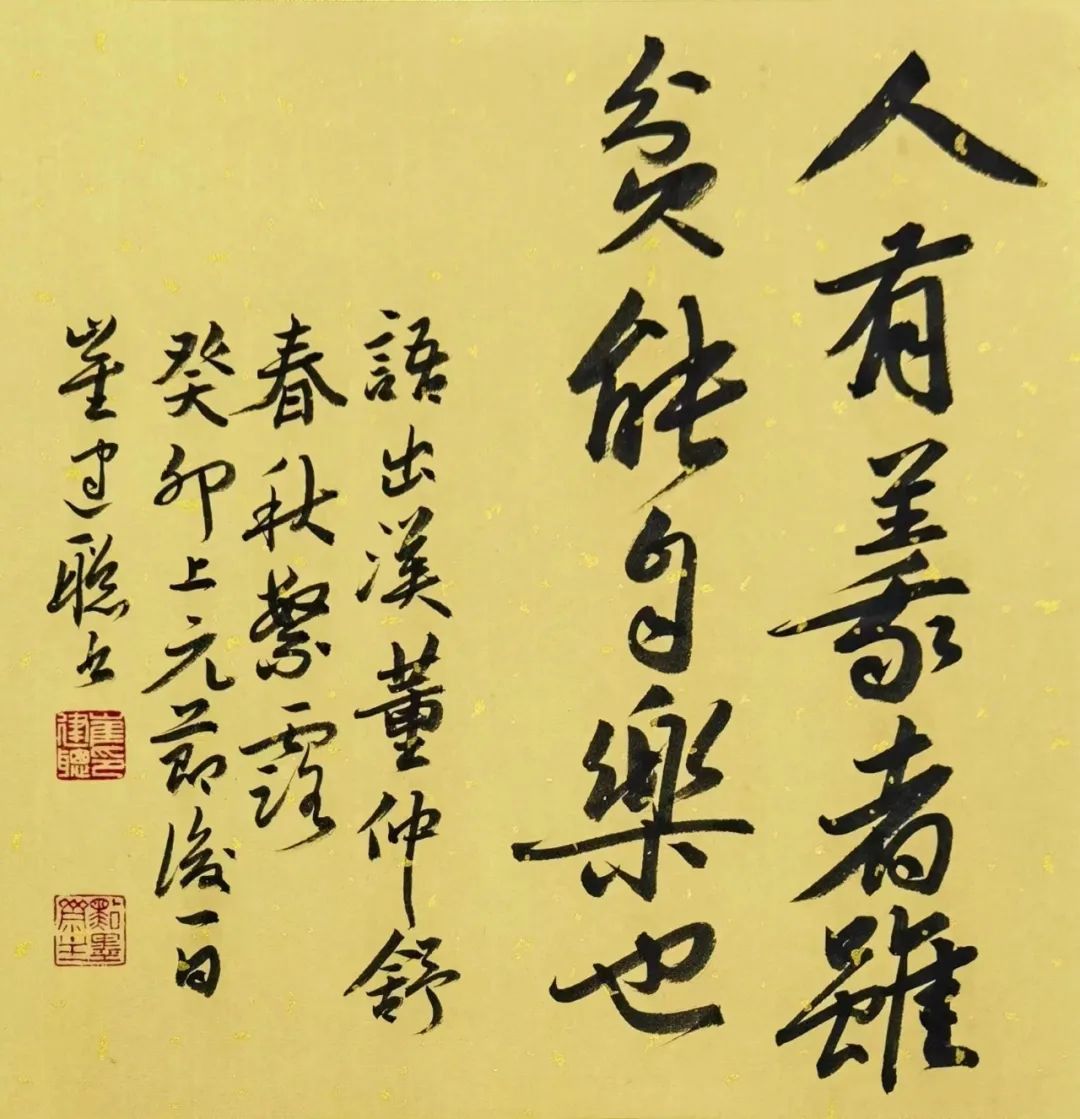 人有義者雖
貧能自樂也
語出漢董仲舒
春秋繁露
癸卯上元節後一日
崔建聰書
崔印建聰